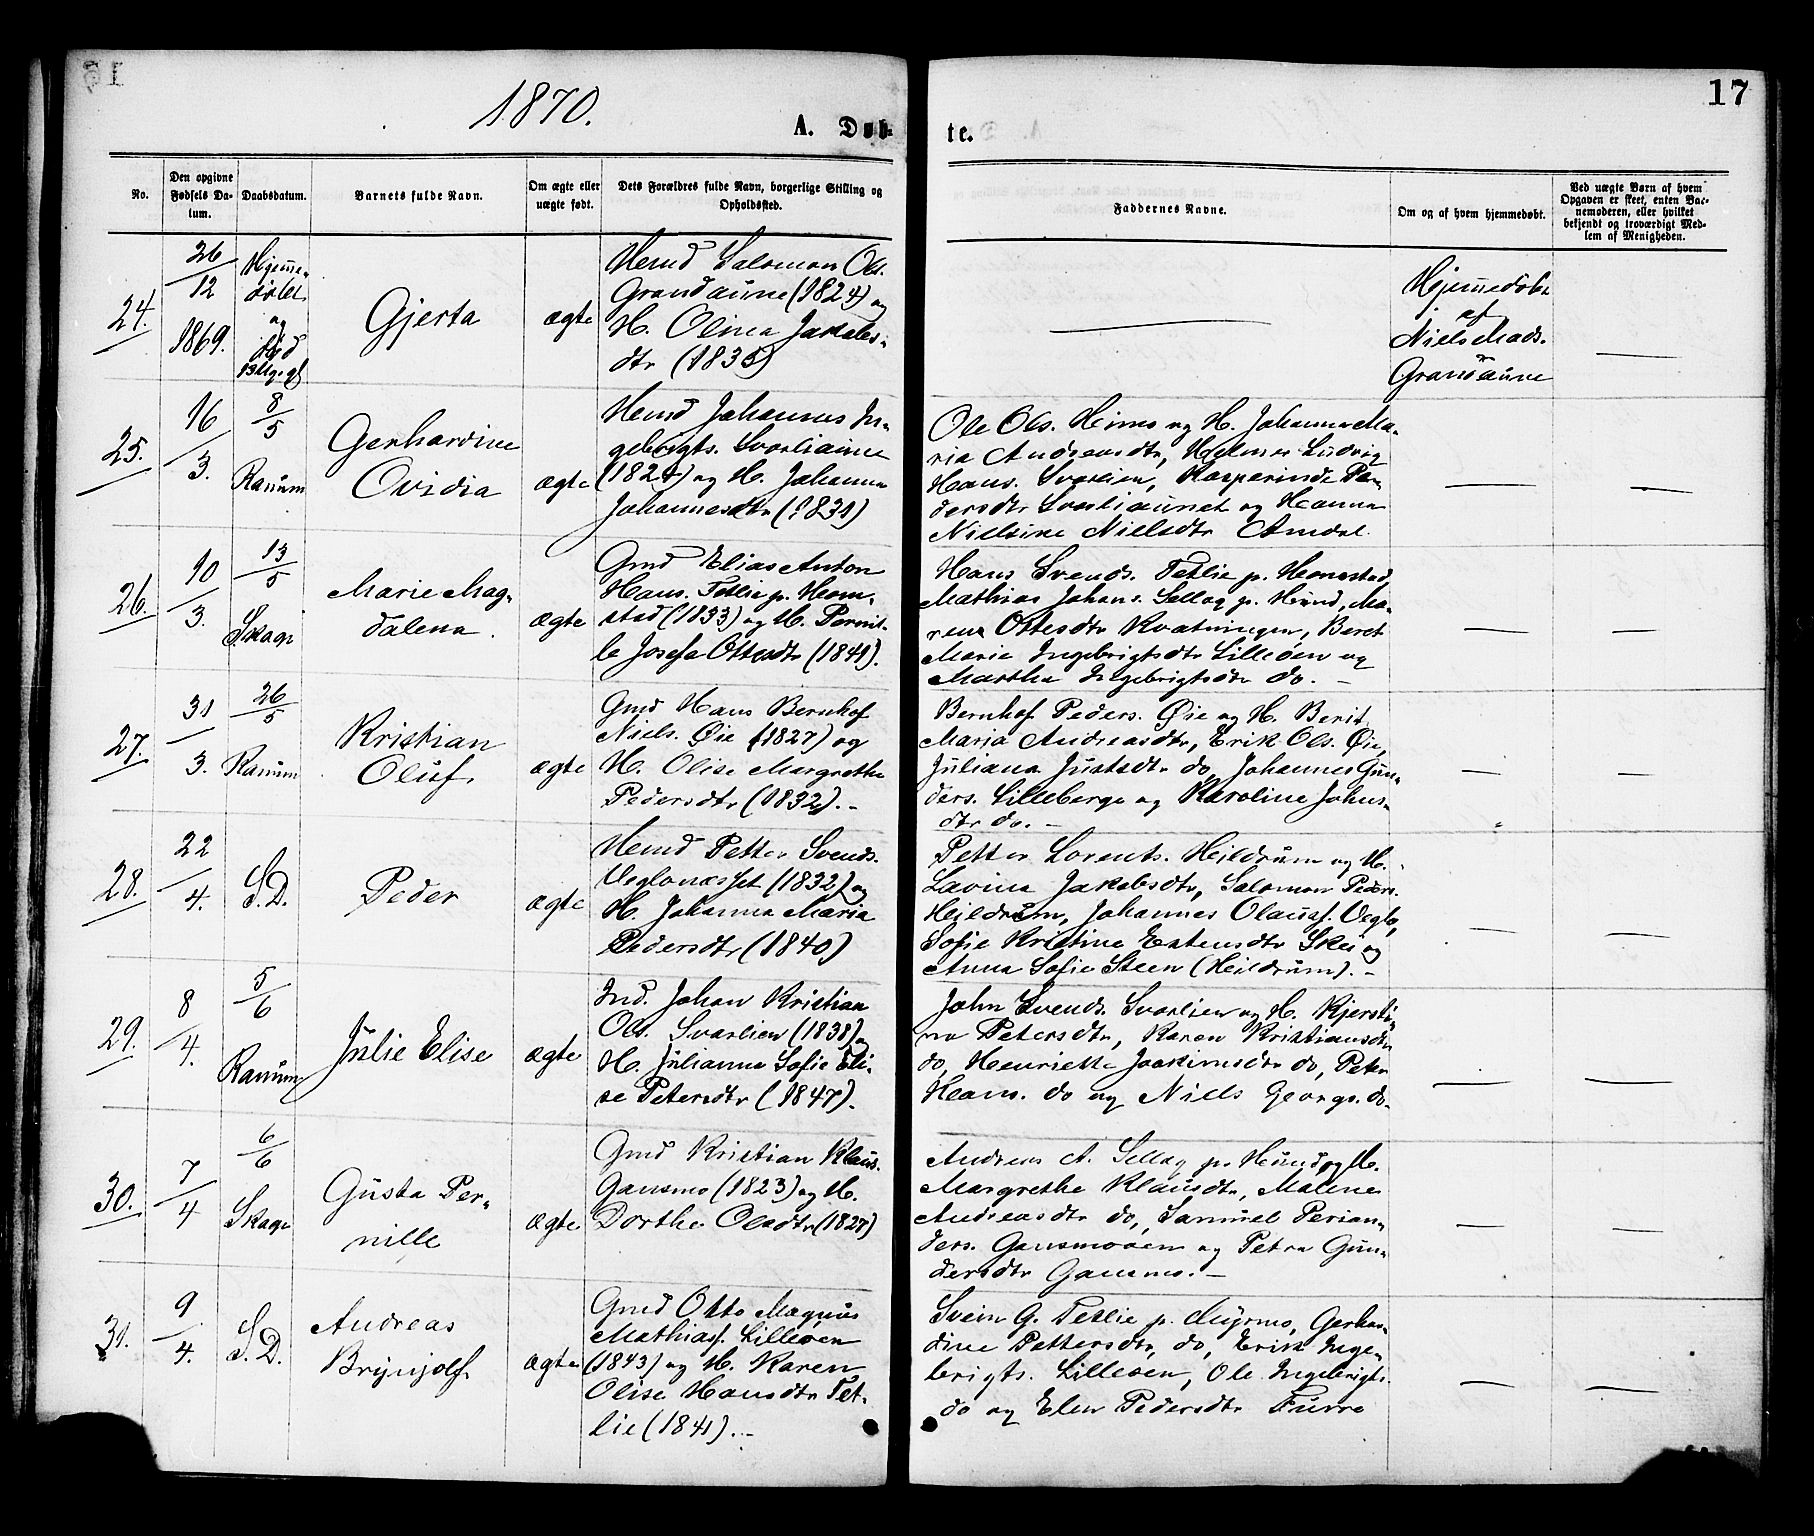 1870.
A. Døb-
te.
17
No.
Den opgivne Fødsels Da-
tum.
Daabsdatum.
Barnets fulde Navn.
Om ægte eller
uægte født.
Dets Forældres fulde Navn, borgerlige Stilling og
Opholdssted.
Faddernes Navne.
Om og af hvem hjemmedøbt.
Ved uægte Børn af hvem
Opgaven er skeet, enten Bar-
nemoderen, eller hvilket
bekjendt og troværdigt Med-
lem af Menigheden.
24.
26/12
1869.
Hjemme-
døbt
og
død
Gjerta
ægte
Hmd Salomon Ols.
Grandaune (1824) og
H. Olina Jakobs-
dtr (1835)
Hjemmedøbt
af
Niels Mads.
Grandaune
25.
16/3.
8/5
Ranum
Gerhardine
Ovidia
ægte
Hmd Johannes In-
gebrigts. Svarliaune
(1824) og H. Johanna
Johannesdtr (1831)
Ole Ols. Heimo og H. Johanna Ma-
ria Andreasdtr, Helmer Ludvig
Hans. Svarlien, Kasperinde Pe-
dersdtr Svarliaunet og Hanna
Nielsine Nielsdtr Amdal.
26.
10/3.
13/5
Skage
Marie Mag-
dalena.
ægte
Gmd Elias Anton
Hans. Tetlie p. Hom-
stad (1833) og H. Pernil-
le Josefa Ottesdtr (1841).
Hans Svends. Tetlie p. Homstad,
Mathias Johans. Sellæg p. Hund, Ma-
ren Ottesdtr Kvatningen, Beret
Marie Ingebrigtsdtr Lilleøen og
Martha Ingebrigtsdtr do. —
27.
31/3.
26/5
Ranum
Kristian
Oluf.
ægte
Gmd Hans Bernhof
Niels. Øie (1827) og
H. Olise Margrethe
Pedersdtr (1832). -
Bernhof Peders. Øie og H. Berit
Maria Andreasdtr, Erik Ols. Øie,
Juliana Justsdtr do, Johannes Gun-
ders. Lilleberge og Karoline Johns-
dtr do. -
28.
22/4.
S.D.
Peder
ægte
Hmd Petter Svends.
Veglonesset (1832) og
H. Johanna Maria
Pedersdtr (1840)
Petter Lorents. Heildrum og H.
Lavina Jakobsdtr, Salomon Peders.
Heildrum, Johannes Olausf. Veglo,
Sofie Kristine Estensdtr Skei og
Anna Sofie Steen (Heildrum). -
29.
8/4.
5/6
Ranum
Julie Elise
ægte
Ind. Johan Kristian
Ols. Svarlien (1838) og
H. Julianna Sofie Eli-
se Petersdtr (1847).
John Svends. Svarlien og H. Kjersti-
na Petersdtr, Karen Kristiansdtr
do, Henriette Joakimsdtr do, Peter
Hans. do og Niels Georgs. do.
30.
7/4
6/6
Skage
Gusta Per-
nille
ægte
Gmd Kristian Klaus.
Gansmo (1823) og H.
Dorthe Olsdtr (1827)
Andreas A. Sellæg p. Hund og H.
Margrethe Klausdtr, Malene
Andreasdtr do, Samuel Perian-
ders. Gansmoøen og Petra Gun-
dersdtr Gansmo. —
31.
9/4.
S.D.
Andreas
Brynjolf.
ægte
Gmd Otto Magnus
Mathiasf. Lilleøen
(1843) og H. Karen
Olise Hansdtr Tet-
lie (1841). -
Svein G. Tetlie p. Myrmo, Gerhar-
dine Pettersdtr, do, Erik Inge-
brigts. Lilleøen, Ole Ingebrigts.
do og Elen Pedersdtr Furre